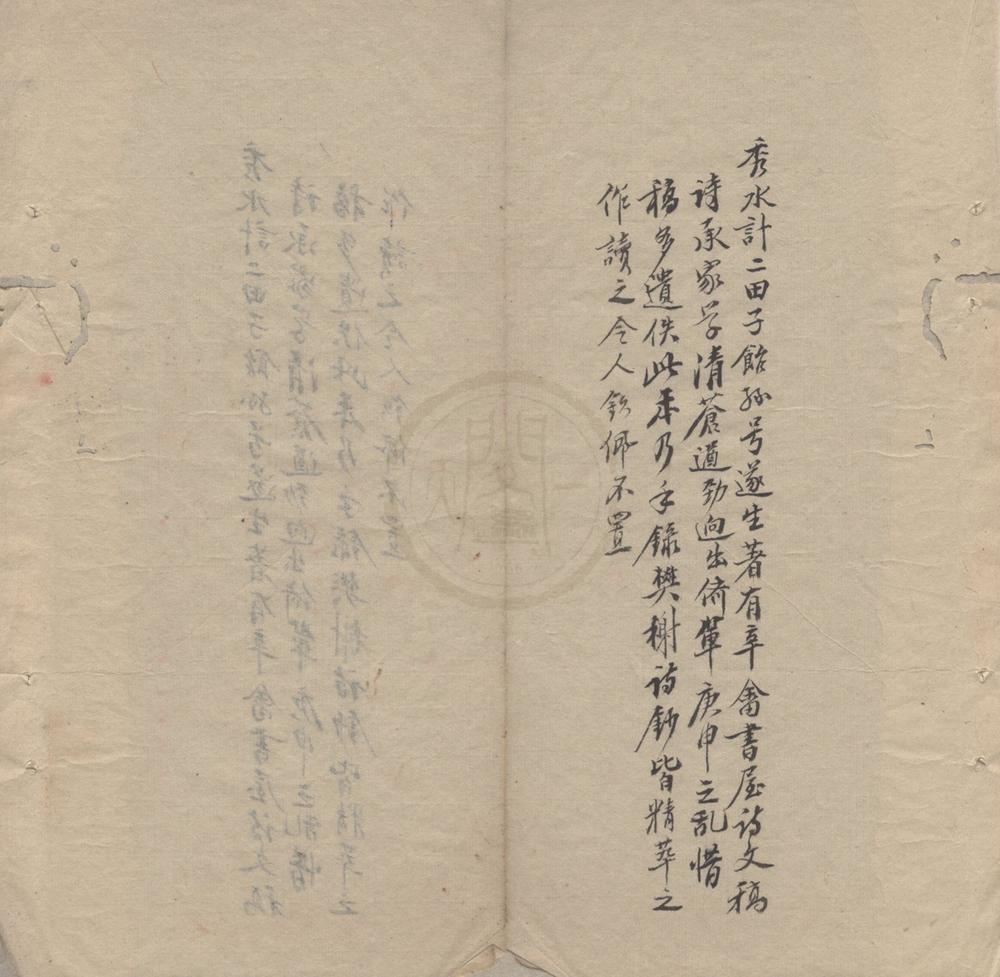 秀水計二田子餘孫号遂生著有辛畬書屋诗文稿
诗承家学清蒼遒勁迥出儕輩庚申之乱惜
稿多遺佚此本乃手錄樊榭诗鈔皆精萃之
作讀之令人欽佩不置